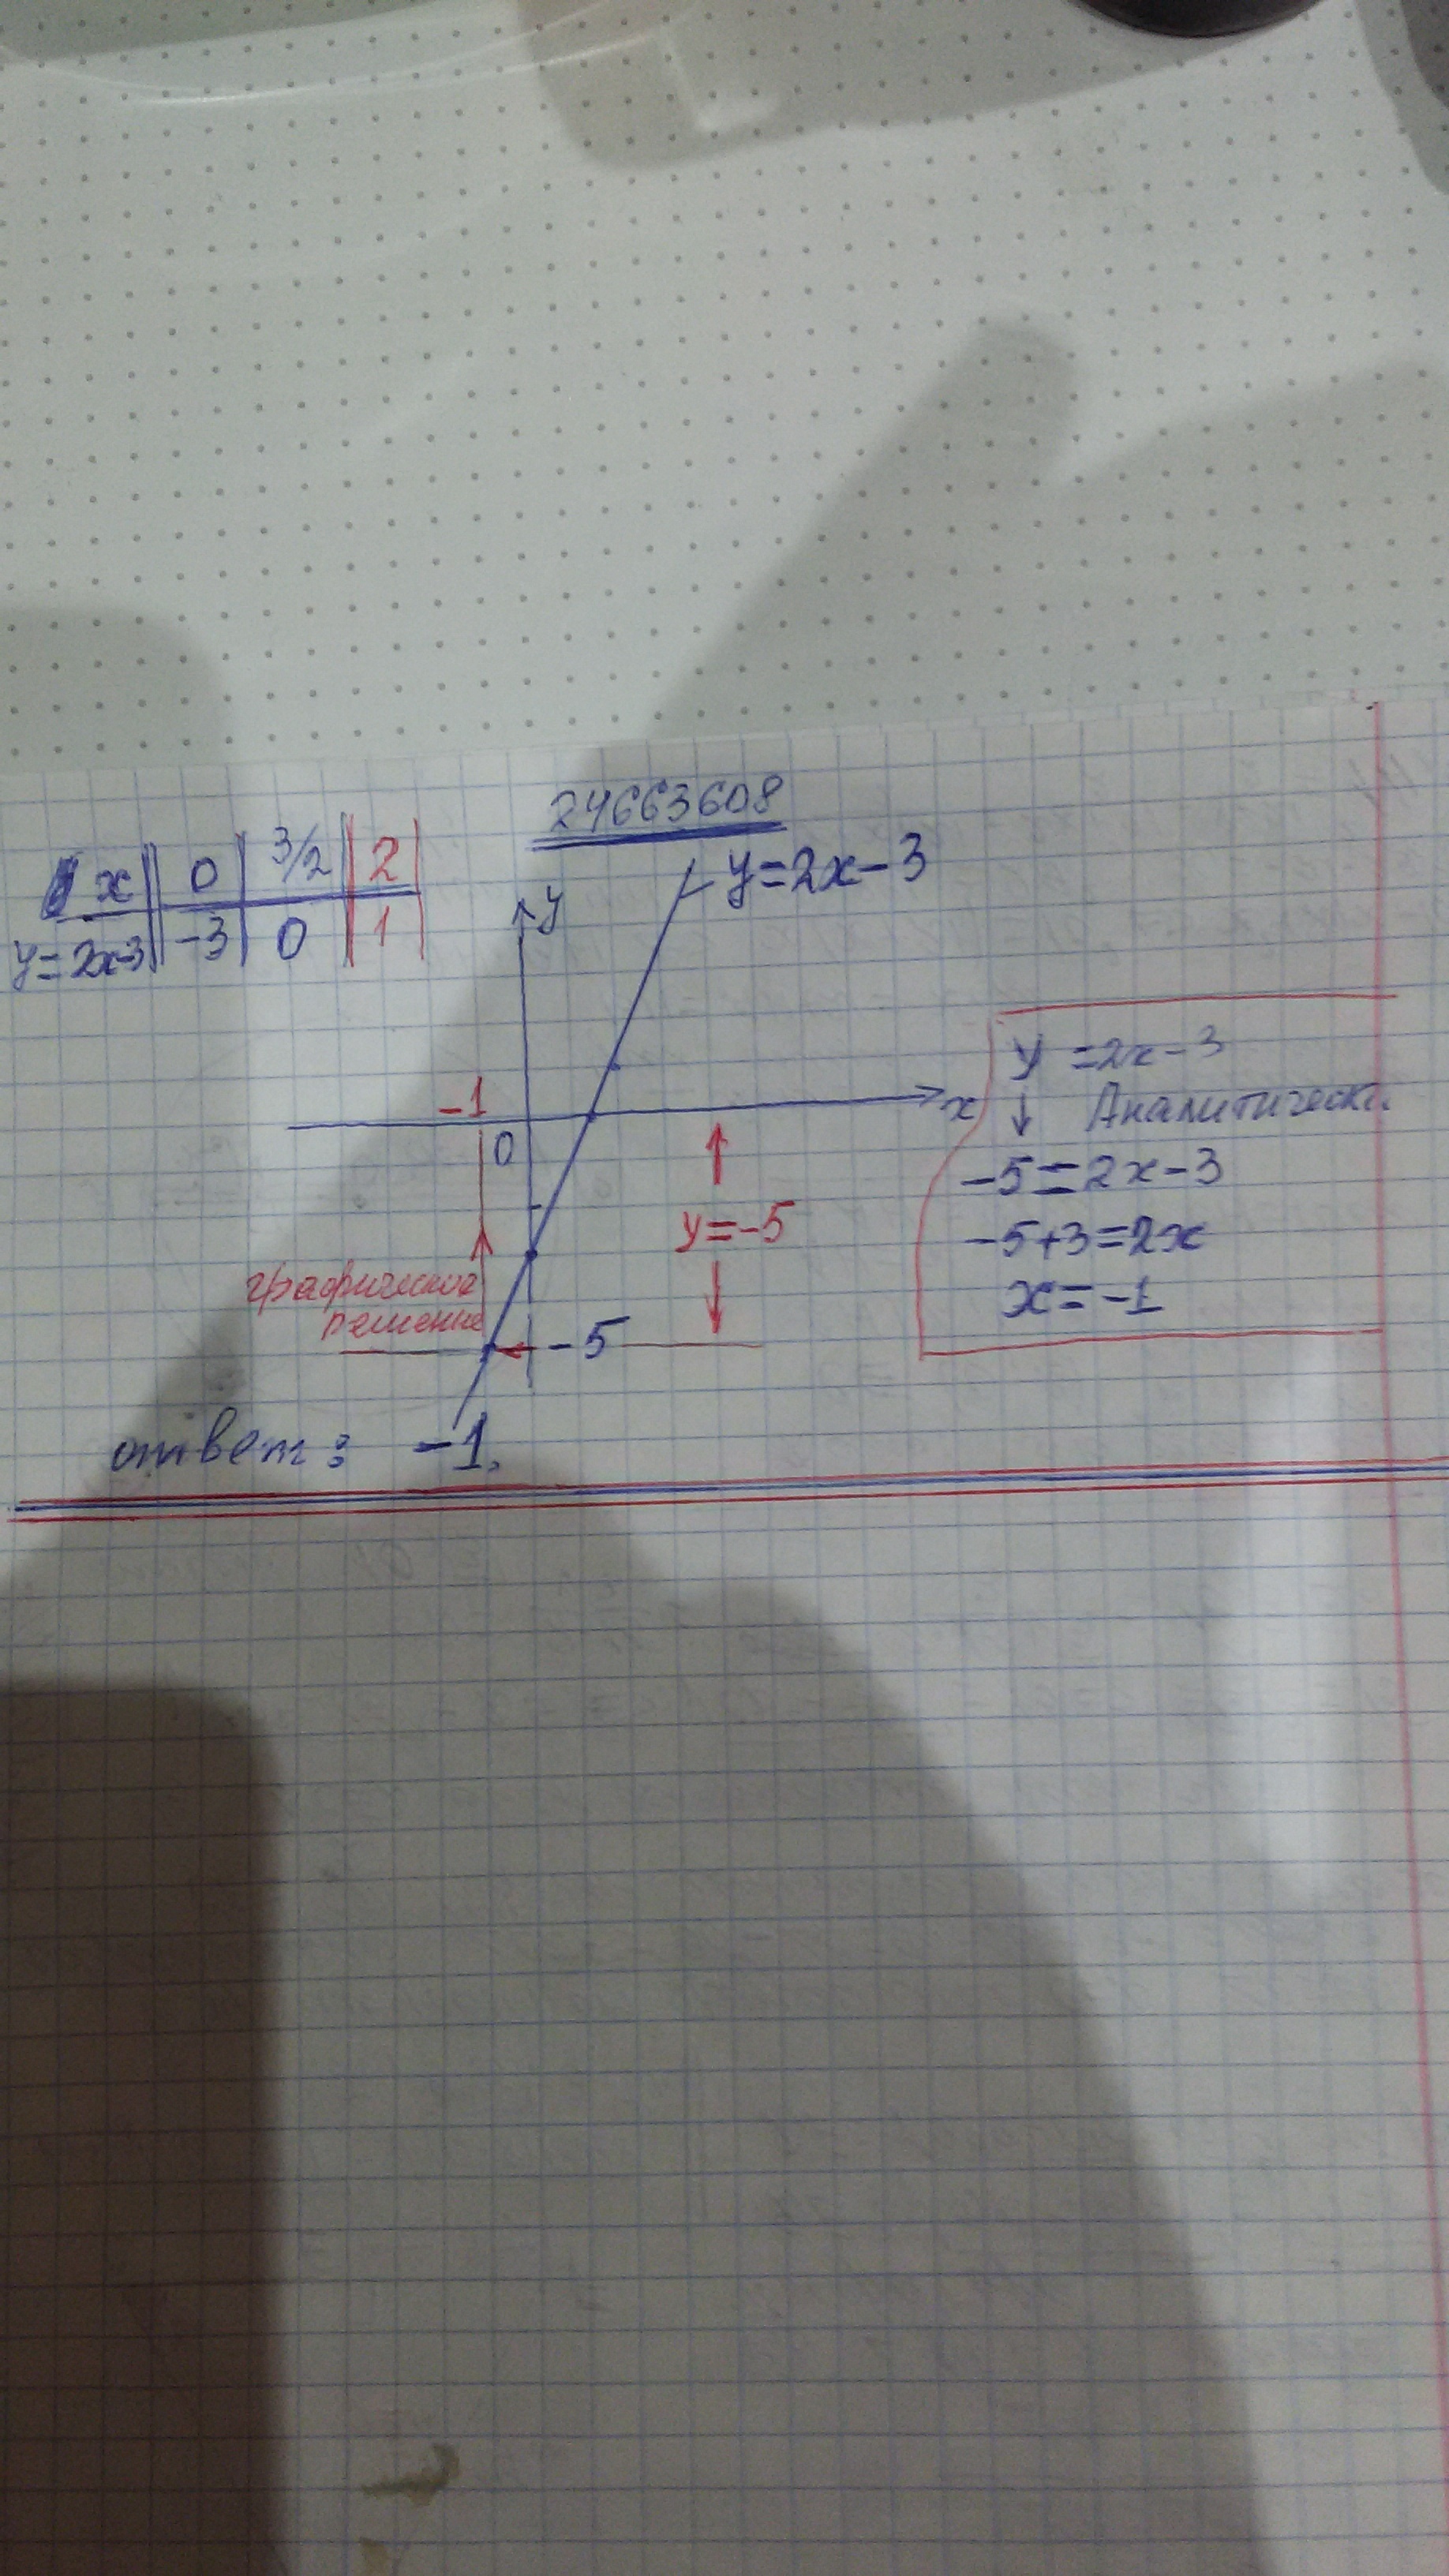 24663608
x 0 3/2 2
y=2x-3 -3 0 1
y
y=2x-3
-1
x
0
y=-5
графическое
решение
-5
y=2x-3
↓ Аналитически
-5=2x-3
-5+3=2x
x=-1
ответ: -1.